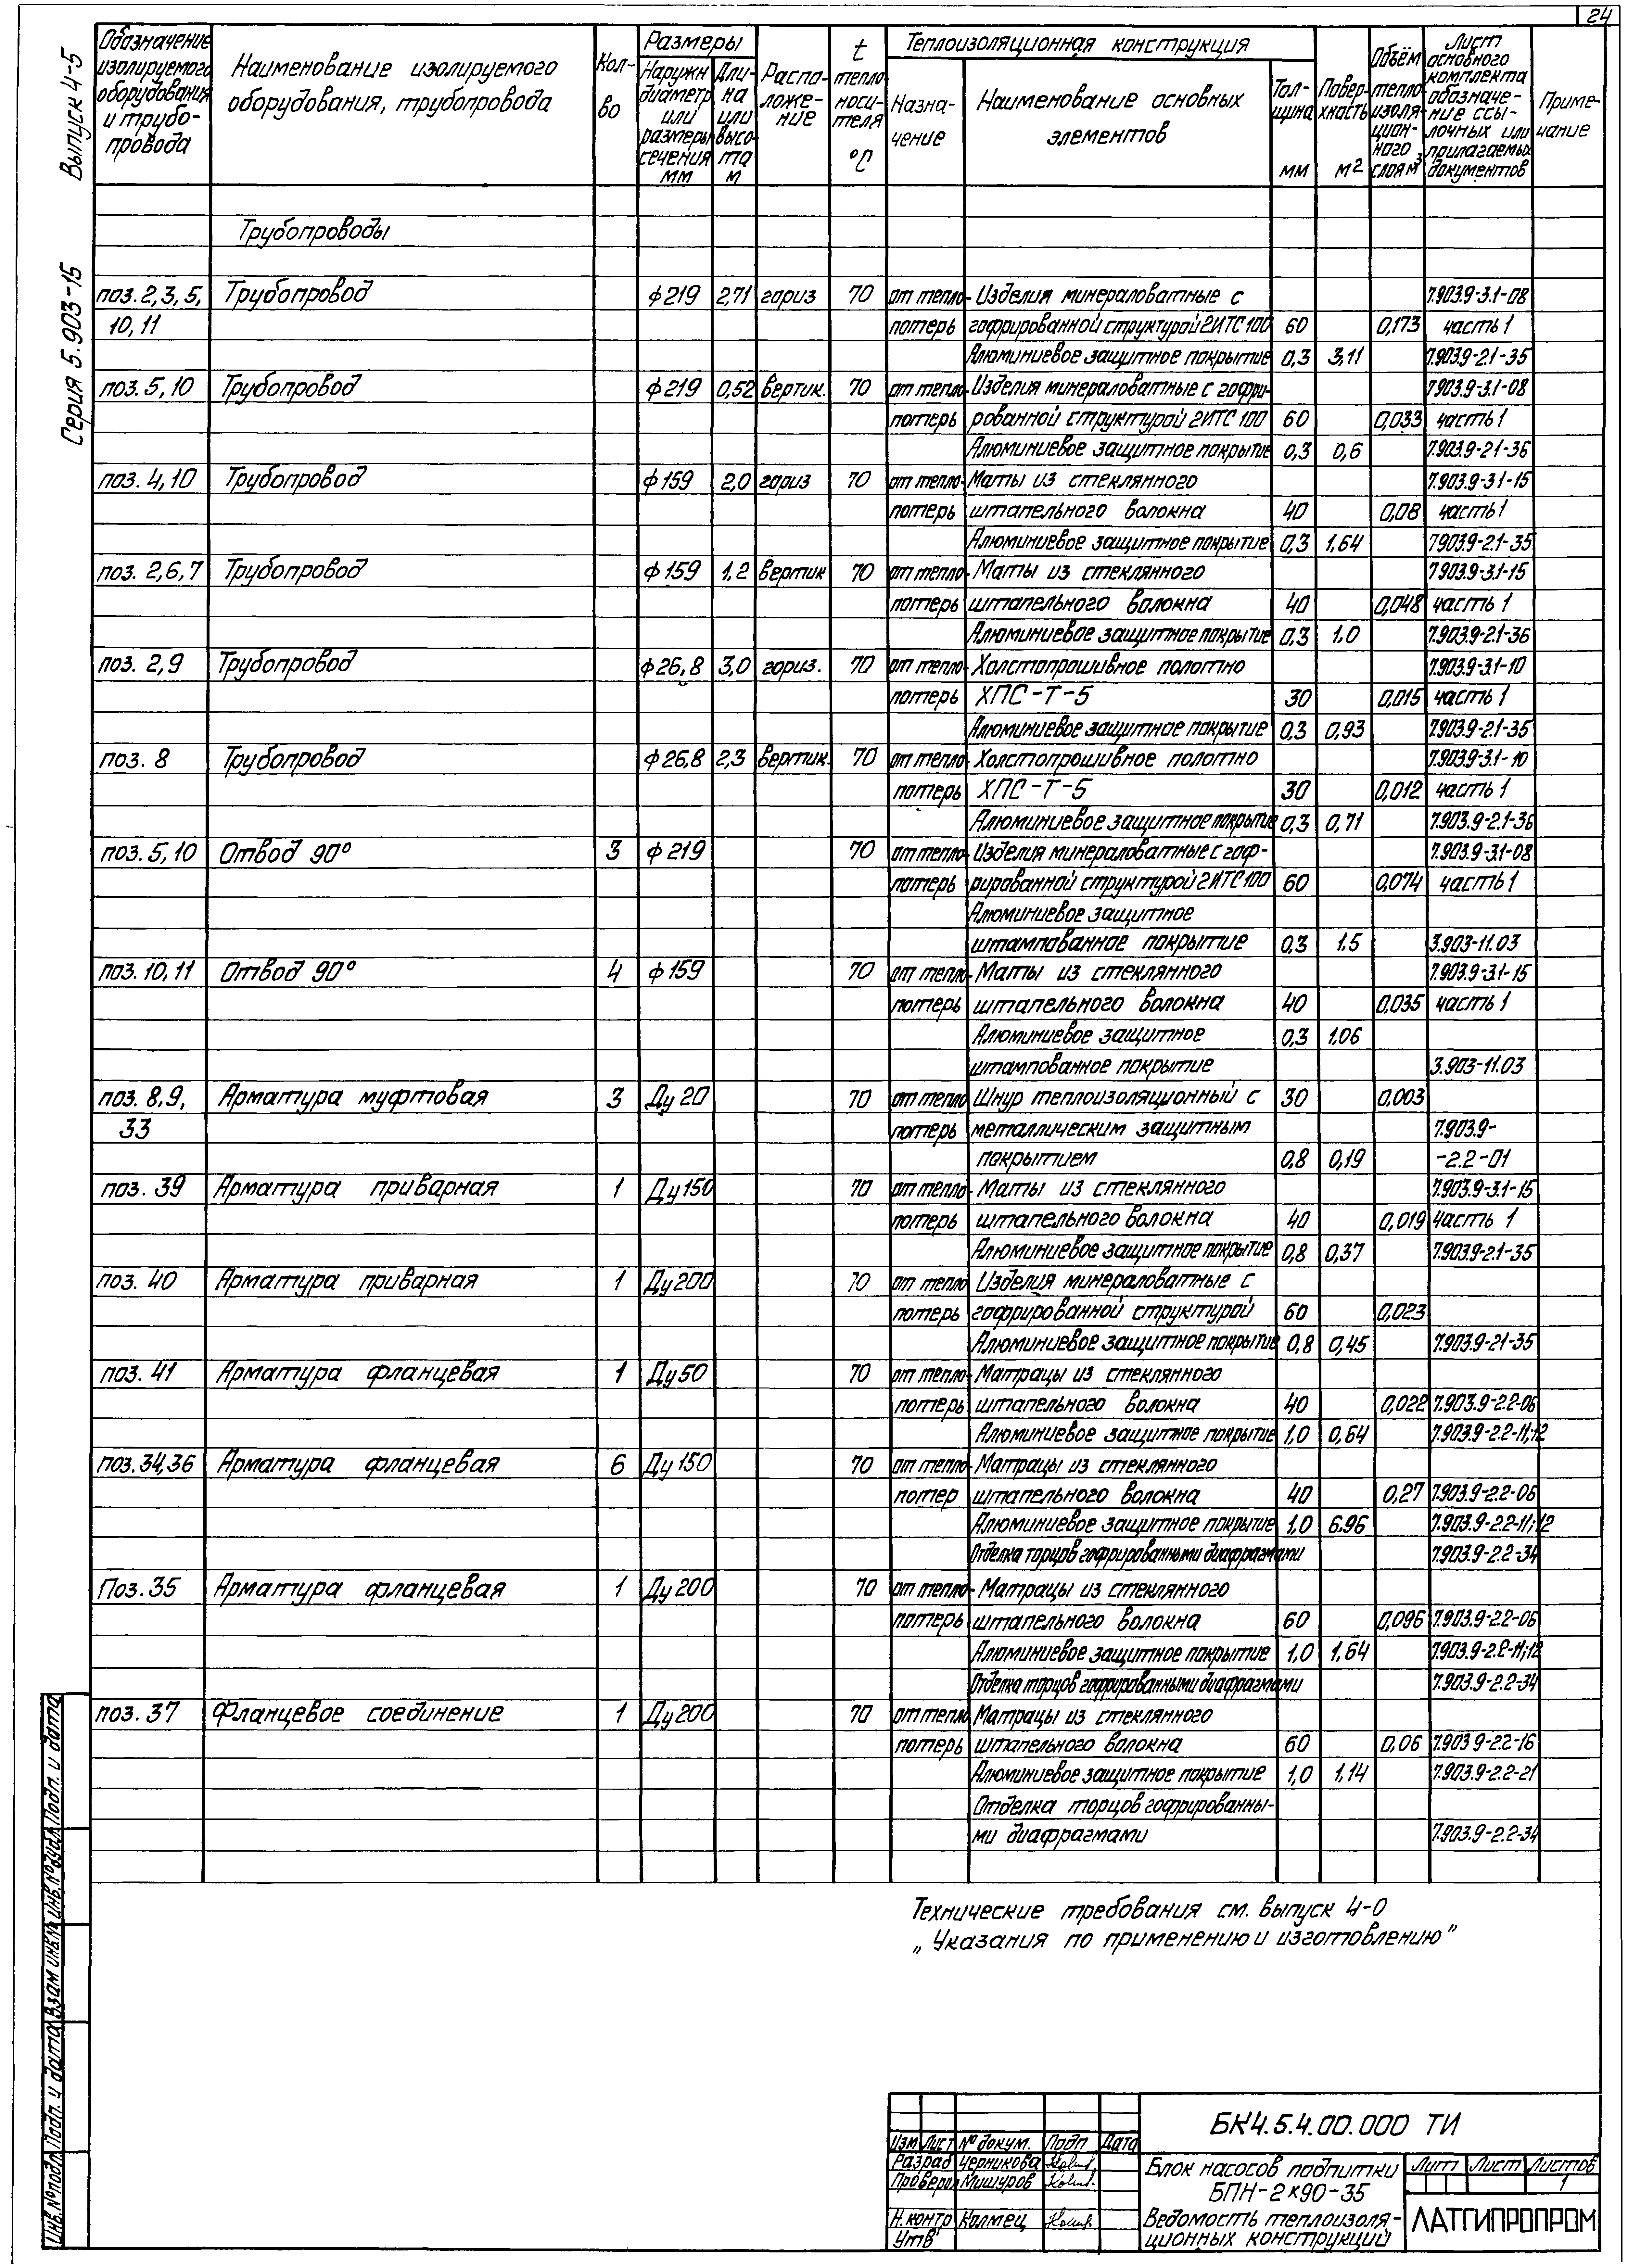 24
Серия 5.903-15 Выпуск 4-5
Обозначение изолируемого оборудования и трубопровода
Наименование изолируемого оборудования, трубопровода
Кол-во
Размеры
Наружн диаметр или размеры сечения мм
Длина или высота м
Расположение
t теплоносителя °С
Теплоизоляционная конструкция
Назначение
Наименование основных элементов
Толщина мм
Поверхность м2
Объём теплоизоляционного слоя м3
Лист основного комплекта обозначение ссылочных или прилагаемых документов
Примечание
Трубопроводы
поз.2,3,5, Трубопровод ф219 2,71 гориз 70 от тепло- Изделия минераловатные с 7.903.9-3.1-08
10,11 потерь гофрированной структурой 2ИТС100 60 0,173 часть 1
Алюминиевое защитное покрытие 0,3 3,11 7.903.9-2.1-35
поз.5,10 Трубопровод ф219 0,52 вертик. 70 от тепло- Изделия минераловатные с гофри- 7.903.9-3.1-08
потерь рованной структурой 2ИТС 100 60 0,033 часть 1
Алюминиевое защитное покрытие 0,3 0,6 7.903.9-2.1-36
поз.4,10 Трубопровод ф159 2,0 гориз 70 от тепло- Маты из стеклянного 7.903.9-3.1-15
потерь штапельного волокна 40 0,08 часть 1
Алюминиевое защитное покрытие 0,3 1,64 7903.9-2.1-35
поз. 2,6,7 Трубопровод ф159 1,2 вертик 70 от тепло- Маты из стеклянного 7903.9-3.1-15
потерь штапельного волокна 40 0,048 часть 1
Алюминиевое защитное покрытие 0,3 1,0 7.903.9-2.1-36
поз. 2,9 Трубопровод ф26,8 3,0 гориз. 70 от тепло- Холстопрошивное полотно 7.903.9-3.1-10
потерь ХПС-Т-5 30 0,015 часть 1
Алюминиевое защитное покрытие 0,3 0,93 7.903.9-2.1-35
поз. 8 Трубопровод ф26,8 2,3 вертик. 70 от тепло Холстопрошивное полотно 7.903.9-3.1-10
потерь ХПС-Т-5 30 0,012 часть 1
Алюминиевое защитное покрытие 0,3 0,71 7.903.9-2.1-36
поз.5,10 Отвод 90° 3 ф219 70 от тепло- Изделия минераловатные с гоф- 7.903.9-3.1-08
потерь рированной структурой 2ИТС100 60 0,074 часть 1
Алюминиевое защитное
штампованное покрытие 0,3 1.5 3.903-11.03
поз.10,11 Отвод 90° 4 ф159 70 от тепло- Маты из стеклянного 7.903.9-3.1-15
потерь штапельного волокна 40 0,035 часть 1
Алюминиевое защитное 0,3 1,06
штампованное покрытие 3.903-11.03
поз. 8,9, Арматура муфтовая 3 Ду 20 70 от тепло Шнур теплоизоляционный с 30 0.003
33 потерь металлическим защитным 7.903.9-
покрытием 0,8 0,19 -2.2-01
поз. 39 Арматура приварная 1 Ду150 70 от тепло- Маты из стеклянного 7.903.9-3.1-15
потерь штапельного волокна 40 0,019 часть 1
Алюминиевое защитное покрытие 0,8 0,37 7.903.9-2.1-35
поз. 40 Арматура приварная 1 Ду200 70 от тепло Изделия минераловатные с
потерь гофрированной структурой 60 0,023
Алюминиевое защитное покрытие 0,8 0,45 7.903.9-2.1-35
поз. 41 Арматура фланцевая 1 Ду50 70 от тепло- Матрацы из стеклянного
потерь штапельного волокна 40 0,022 7.903.9-2.2-06
Алюминиевое защитное покрытие 1,0 0,64 7.903.9-2.2-11;12
поз.34,36 Арматура фланцевая 6 Ду150 70 от тепло- Матрацы из стеклянного
потер штапельного волокна 40 0,27 7.903.9-2.2-06
Алюминиевое защитное покрытие 1,0 6.96 7.903.9-2.2-11;12
Отделка торцов гофрированными диафрагмами 7.903.9-2.2-34
Поз.35 Арматура фланцевая 1 Ду200 70 от тепло- Матрацы из стеклянного
потерь штапельного волокна 60 0,096 7.903.9-2.2-06
Алюминиевое защитное покрытие 1,0 1,64 7.903.9-2.2-11;12
Отделка торцов гофрированными диафрагмами 7.903.9-2.2-34
поз. 37 Фланцевое соединение 1 Ду200 70 от тепло Матрацы из стеклянного
потерь штапельного волокна 60 0,06 7.903 9-2.2-16
Алюминиевое защитное покрытие 1,0 1,14 7.903.9-2.2-21
Отделка торцов гофрированны-
ми диафрагмами 7.903.9-2.2-34
Технические требования см. выпуск 4-0
„Указания по применению и изготовлению"
Инв.№подл. Подп. и дата Взам инв.№ Инв.№дубл. Подп. и дата
БК4.5.4.00.000 ТИ
Изм Лист № докум. Подп Дата
Разраб Черникова
Проверил Мишуров
Н.контр Колмец
Утв
Блок насосов подпитки
БПН-2×90-35
Ведомость теплоизоля-
ционных конструкций
Лит Лист Листов
1
ЛАТГИПРОПРОМ